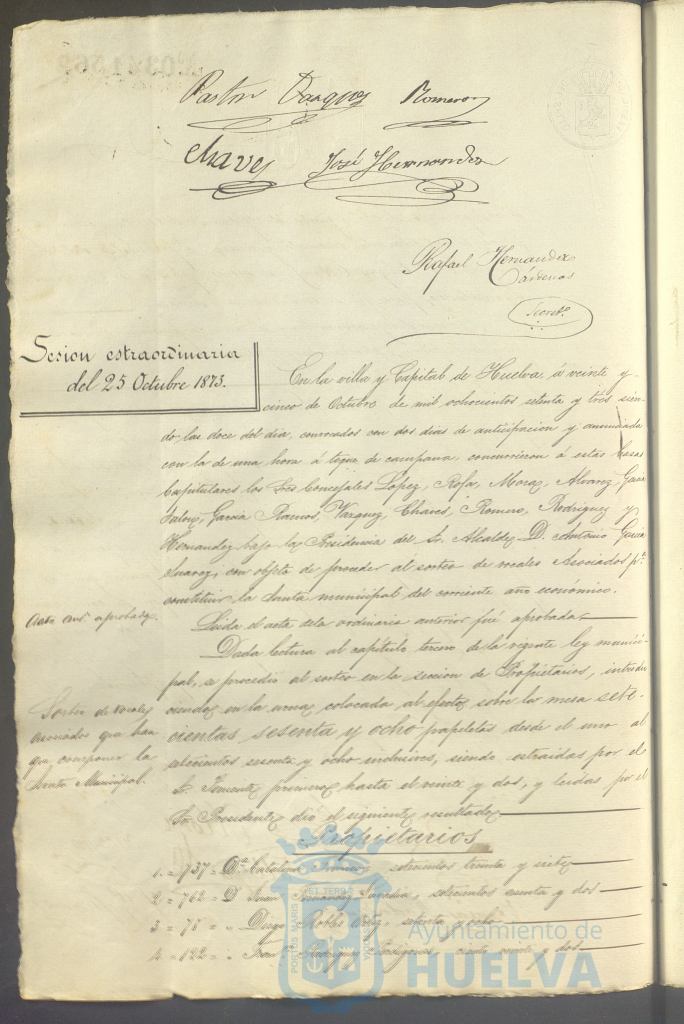 Pastor Vazquez Romero
Chaves José Hernandez
Rafael Hernandez
Cárdenas
Secreto.
Sesion estraordinaria
del 25 Octubre 1873.
En la villa y Capital de Huelva á veinte y
cinco de Octubre de mil ochocientos setenta y tres sien-
do las doce del dia, convocados con dos dias de anticipacion y anunciada
con la de una hora á toque de campana, concurrieron á estas Casas
Capitulares los Sres Concejales Lopez, Rofa, Mora, Alvarez, Garcia
Garcia Ramos, Vazquez, Chaves, Romero, Rodriguez y
Hernandez bajo la Presidencia del Sr. Alcalde D. Antonio Garcia
Suarez, con objeto de proceder al sorteo de vocales Asociados pa.
constituir la Junta municipal del corriente año económico.
Acta antr. aprobada.
Leida el acta dela ordinaria anterior fué aprobada.
Dada lectura al capitulo tercero de la vigente ley munici-
pal, se procedió al sorteo en la seccion de Propietarios, introdu
ciendo en la urna colocada al efecto sobre la mesa sete-
cientas sesenta y ocho papeletas desde el uno al
setecientos sesenta y ocho inclusives, siendo estraidas por el
Sr. Teniente primero hasta el veinte y dos, y leidas por el
Sr. Presidente dió el siguiente resultado
Sorteo de vocales
asociados que han
que componer la
Junta Municipal.
Propietarios
1. = 737 = Da. Catalina Romero, setecientos treinta y siete
2 = 762 = D. Juan Fernandez setecientos sesenta y dos
3 = 78 = " Diego Robles Ortiz, setenta y ocho
4 = 122 = " Franco. Rodriguez ciento veinte y dos
PORTUS MARIS ET TERRE CUSTODIA
Ayuntamiento de
HUELVA